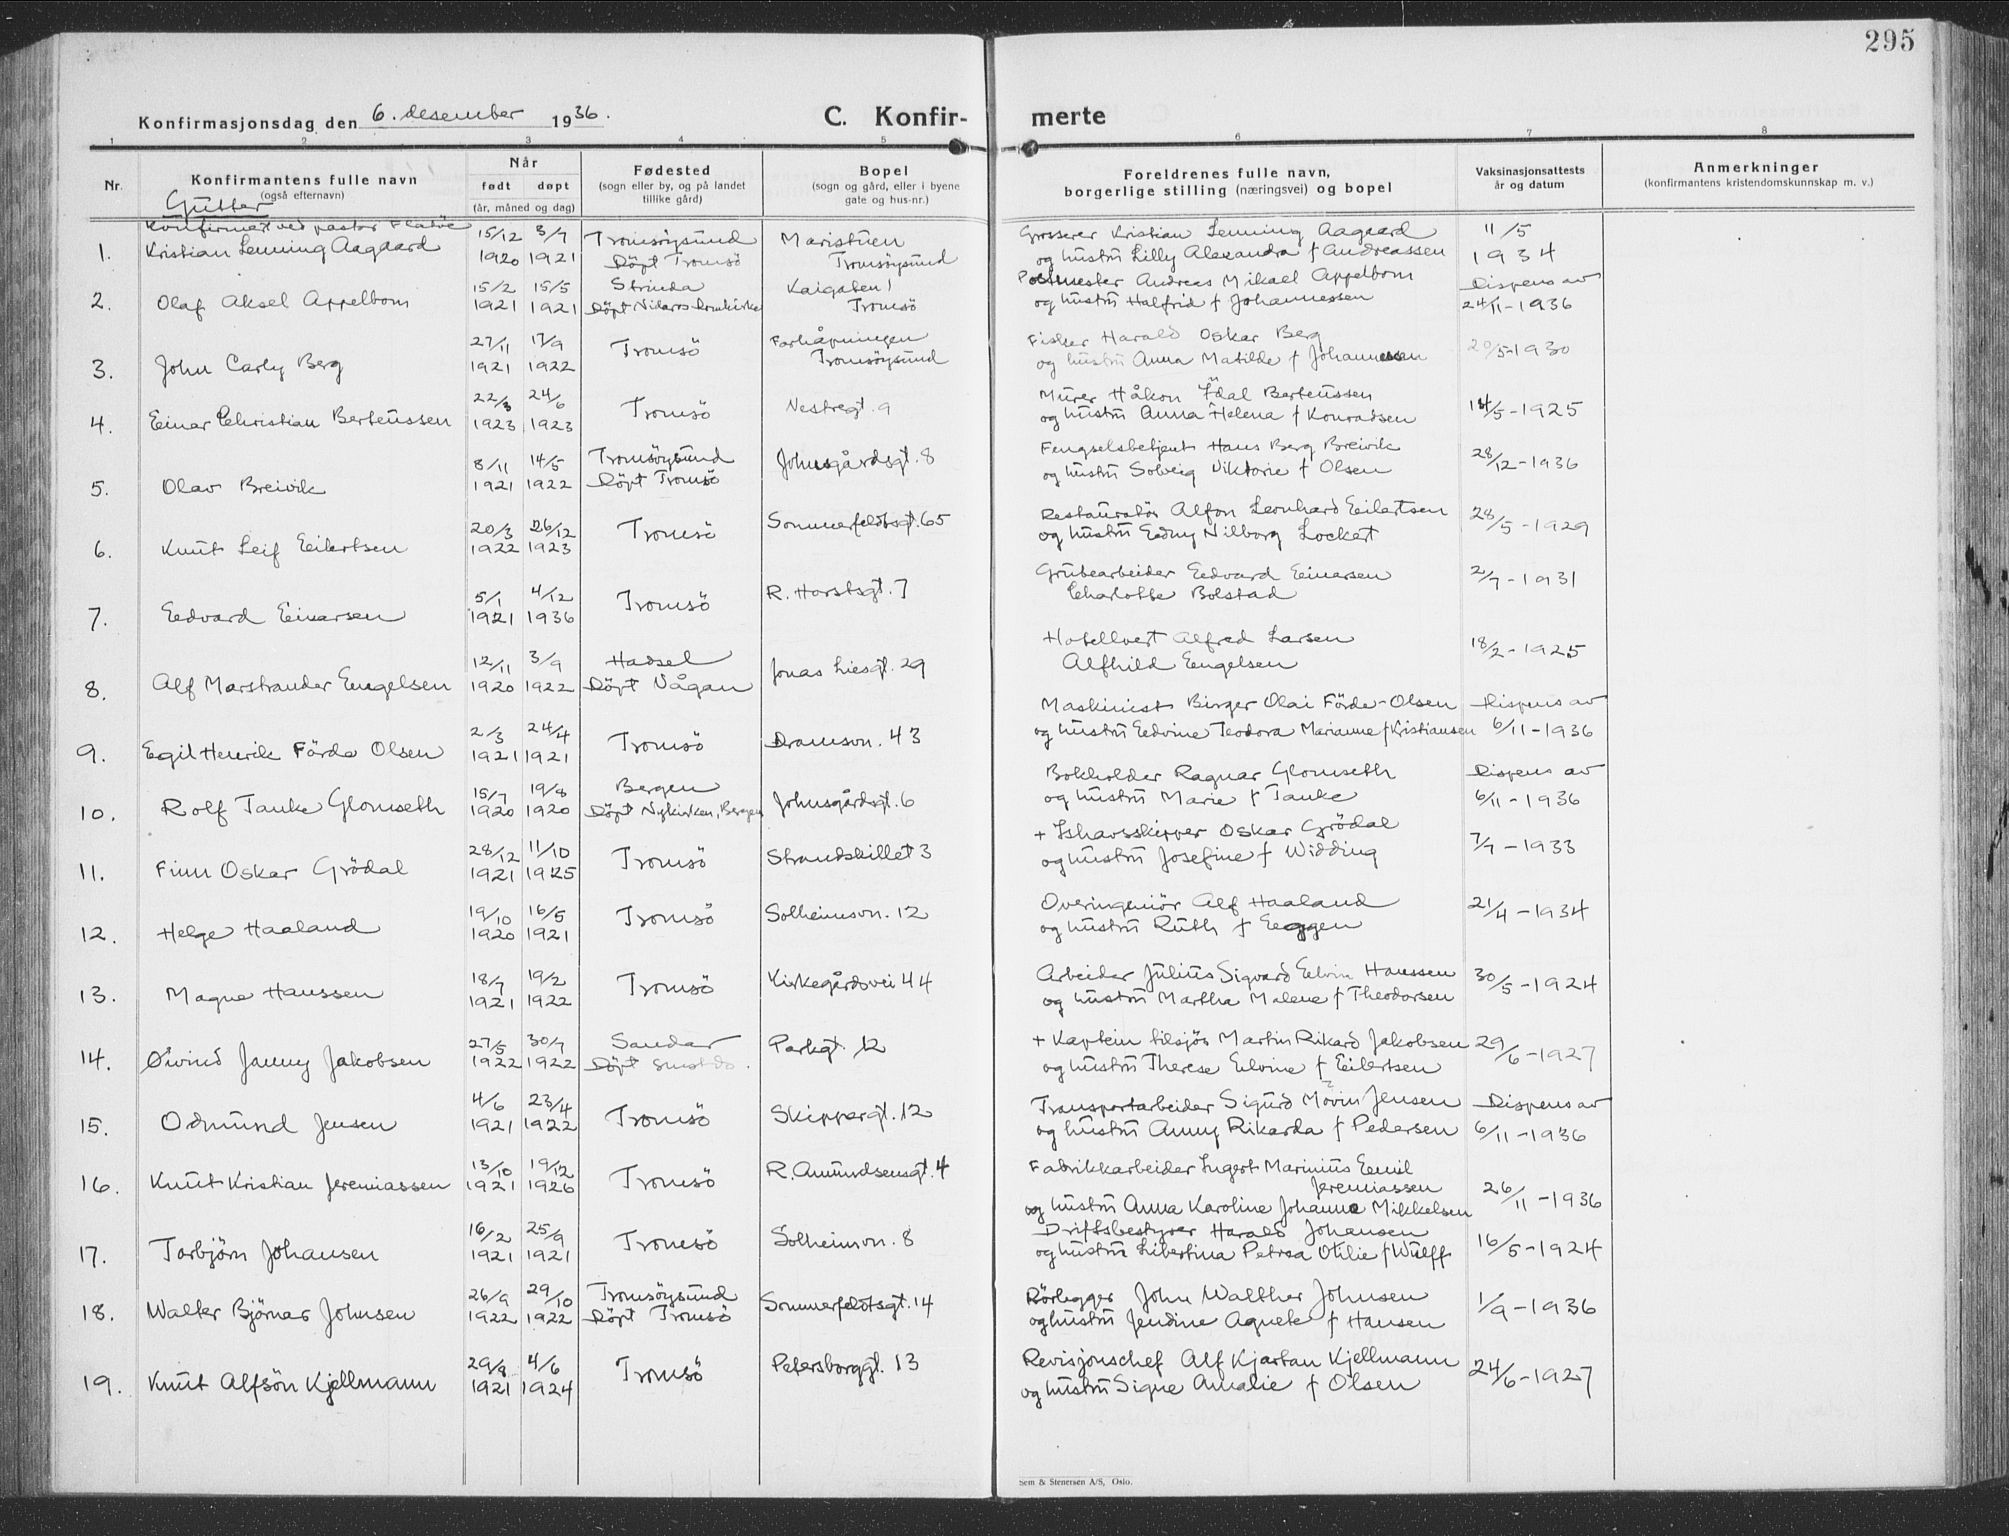 295
Konfirmasjonsdag den 6. desember 1936.
C. Konfir- merte
1 2 3 4 5 6 7 8
Nr.
Konfirmantens fulle navn
(også efternavn)
Når
født døpt
(år, måned og dag)
Fødested
(sogn eller by, og på landet
tillike gård)
Bopel
(sogn og gård, eller i byene
gate og hus-nr.)
Foreldrenes fulle navn,
borgerlige stilling (næringsvei) og bopel
Vaksinasjonsattests
år og datum
Anmerkninger
(konfirmantens kristendomskunnskap m. v.)
Gutter
Konfirmert ved pastor
1. Kristian Lenning Aagaard 15/12 1920 3/7 1921 Tromsöysund Döpt Tromsö Maristuen Tromsöysund Grosserer Kristian Lenning Aagaard 11/5
og hustru Lilly Alexandra f Andreassen 1934
2. Olaf Aksel Appelbom 15/2 1921 15/5 1921 Strinda Döpt Nidaros domkirke Kaigaten 1 Tromsö Postmester Andreas Mikael Appelbom Dispens av
og hustru Halfrid f Johannessen 24/11-1936
3. John Carly Berg 27/11 1921 17/9 1922 Tromsö Forhåpningen Tromsöysund Fisker Harald Oskar Berg
og hustru Anna Matilde f Johannessen 20/5-1930
4. Einar Christian Berteussen 22/3 1923 24/6 1923 Tromsö Vestregt. 9 Murer Håkon Ödal Berteussen
og hustru Anna Helena f Konradsen 14/5-1925
5. Olav Breivik 8/11 1921 14/5 1922 Tromsöysund Döpt Tromsö Johnsgårdsgt. 8 Fengselsbetjent Hans Berg Breivik
og hustru Solveig Viktorie f Olsen 28/12-1936
6. Knut Leif Eilertsen 20/3 1922 26/12 1923 Tromsö Sommerfeldtsgt. 65 Restauratör Alfon Leonhard Eilertsen
og hustru Edny Nilborg Lockert 28/5-1929
7. Edvard Einarsen 5/1 1921 4/12 1936 Tromsö R. Horstsgt. 7 Grubearbeider Edvard Einarsen
Charlotte Bolstad 2/7-1931
8. Alf Marstrander Engelsen 12/11 1920 3/9 1922 Hadsel Döpt Vågan Jonas Liesgt. 29 Hotellvert Alfred Larsen
Alfhild Engelsen 18/2-1925
9. Egil Henrik Förde Olsen 2/3 1921 24/4 1921 Tromsö Dramsvn. 43 Maskinist Birger Olai Förde-Olsen Dispens av
og hustru Edvine Teodora Marianne f Kristiansen 6/11-1936
10. Rolf Tanke Glomseth 15/7 1920 19/8 1920 Bergen Döpt Nykirken, Bergen Johnsgårdsgt. 6 Bokholder Ragnar Glomseth Dispens av
og hustru Marie f Tanke 6/11-1936
11. Finn Oskar Grödal 28/12 1921 11/10 1925 Tromsö Strandskillet 3 + Ishavsskipper Oskar Grödal
og hustru Josefine f Widding 7/7-1933
12. Helge Haaland 19/10 1920 16/5 1921 Tromsö Solheimsvn. 12 Overingeniör Alf Haaland
og hustru Ruth f Eggen 21/4-1934
13. Magne Hanssen 18/7 1921 19/2 1922 Tromsö Kirkegårdsvei 44 Arbeider Julius Sigvard Edvin Hanssen
og hustru Martha Malene f Theodorsen 30/5-1924
14. Øivind Janny Jakobsen 27/5 1922 30/7 1922 Sandar Döpt Parkgt. 12 + Kaptein tilsjös Martin Rikard Jakobsen
og hustru Therese Elvine f Eilertsen 29/6-1927
15. Odmund Jensen 4/6 1921 23/4 1922 Tromsö Skippergt. 12 Transportarbeider Sigurd Movin Jensen Dispens av
og hustru Anny Rikarda f Pedersen 6/11-1936
16. Knut Kristian Jeremiassen 13/10 1921 19/12 1926 Tromsö R. Amundsensgt. 4 Fabrikkarbeider Ingert Marinius Emil
Jeremiassen
og hustru Anna Karoline Johanna Mikkelsen 26/11-1936
17. Torbjörn Johansen 16/2 1921 25/9 1921 Tromsö Solheimvn. 8 Driftsbestyrer Harald Johansen
og hustru Libertina Petrea Otilie f Wulff 16/5-1924
18. Walter Björnar Johnsen 26/9 1922 29/10 1922 Tromsöysund Döpt Tromsö Sommerfeldtsgt. 14 Rörlegger John Walther Johnsen
og hustru Jendine Agnete f Hansen 1/9-1936
19. Knut Alfsön Kjellmann 29/8 1921 4/6 1924 Tromsö Petersborggt. 13 Revisjonschef Alf Kjartan Kjellmann
og hustru Signe Amalie f Olsen 24/6-1927
Sem & Stenersen A/S, Oslo.